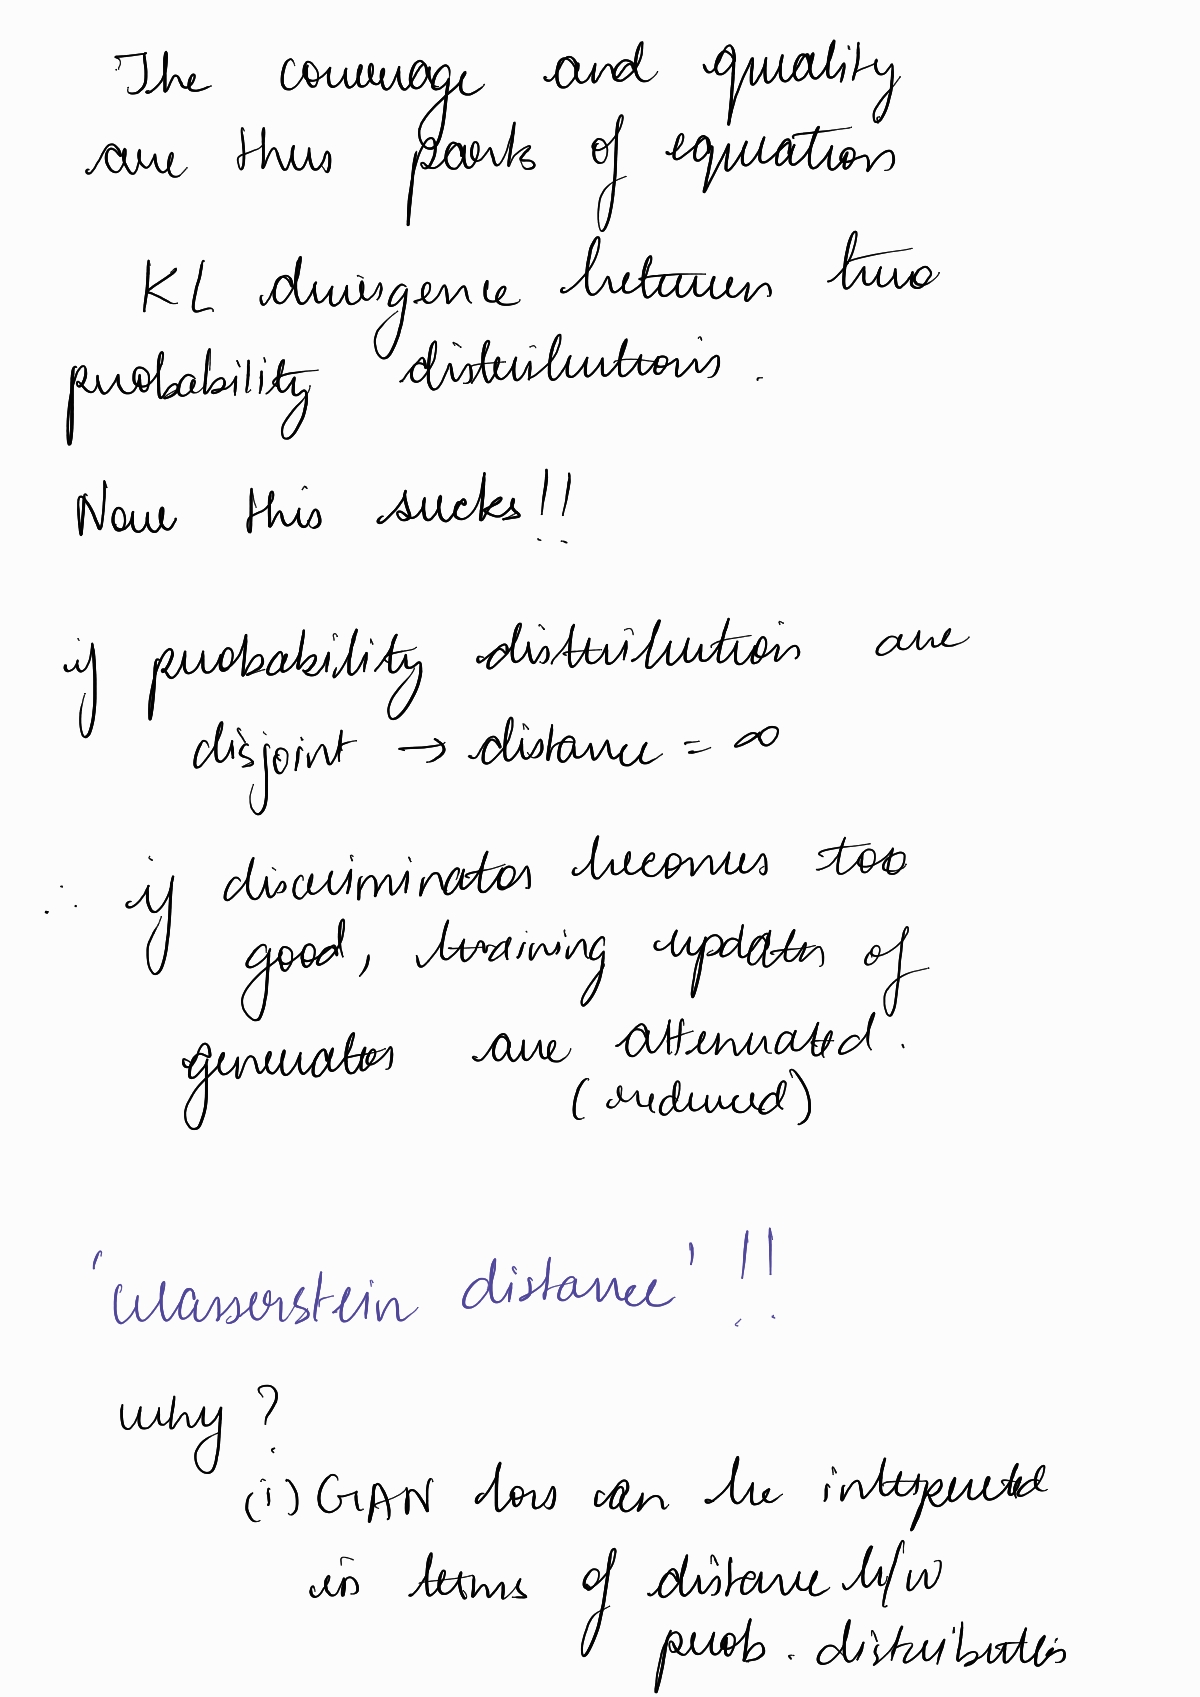 The coverage and quality
are thus parts of equation
KL divergence between two
probability distributions.
Now this sucks!!
if probability distribution are
disjoint → distance = ∞
∴ if discriminator becomes too
good, training updates of
generator are attenuated.
(reduced)
'Wasserstein distance' !!
why?
(i) GAN loss can be interpreted
in terms of distance b/w
prob. distributions